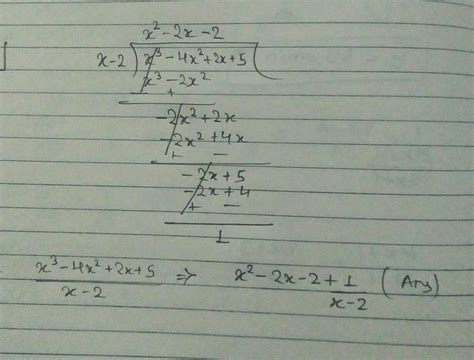 x² - 2x - 2
x-2 ) x³ - 4x² + 2x + 5 (
x³ - 2x²
+
-2x² + 2x
-2x² + 4x
+ -
-2x + 5
-2x + 4
+ -
1
x³ - 4x² + 2x + 5 ⇒ x² - 2x - 2 + 1 (Ans)
x - 2 x - 2